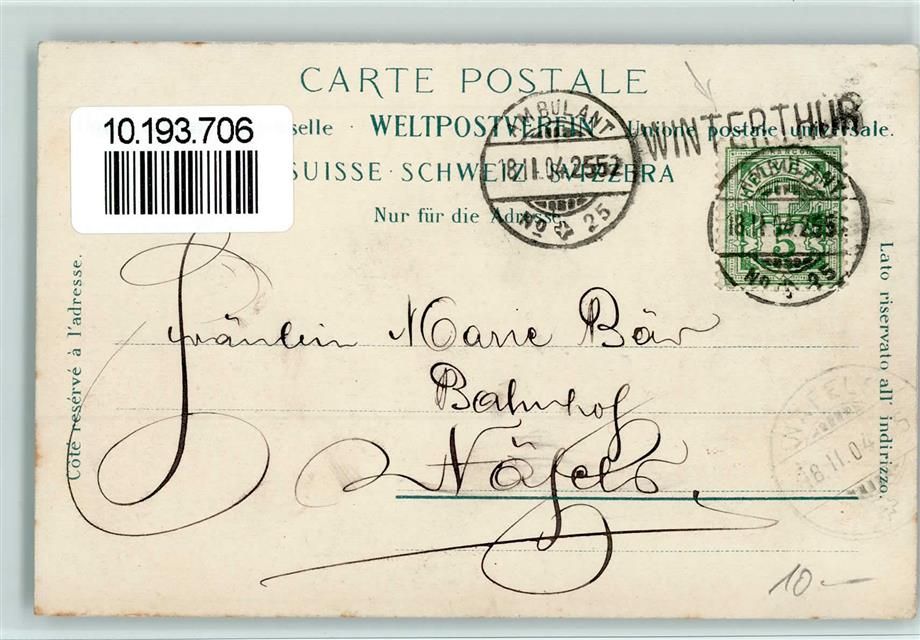 CARTE POSTALE
10.193.706
selle · WELTPOSTVEREIN · Unione postale universale.
WINTERTHUR
SUISSE · SCHWEIZ · SVIZZERA
Nur für die Adresse
AMBULANT
18.II.04.2552
No 25
HELVETIA
5
AMBULANT
18.II.04.255
No 25
Côté réservé à l'adresse.
Lato riservato all' indirizzo.
Fräulein Marie Bär
Bahnhof
Näfels.
NÄFELS
18.II.04
10.-